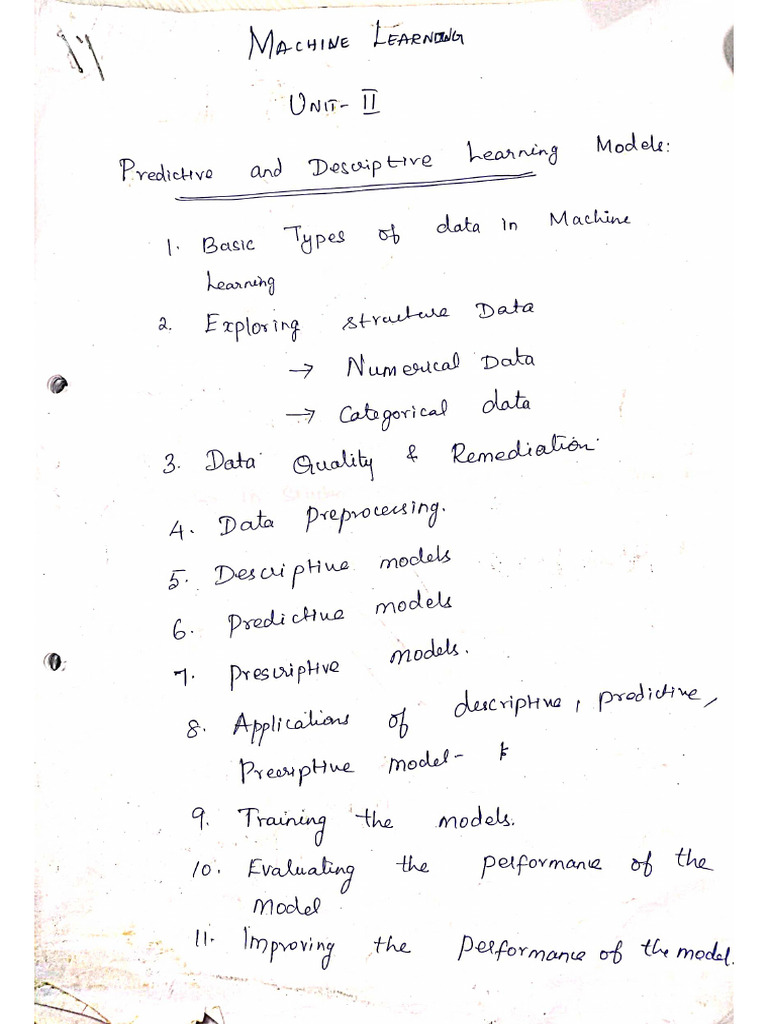 MACHINE LEARNING
UNIT- II
Predictive and Descriptive Learning Models:
1. Basic Types of data in Machine
Learning
2. Exploring structure Data
→ Numerical Data
→ Categorical data
3. Data Quality & Remediation.
4. Data preprocessing.
5. Descriptive models
6. Predictive models
7. Prescriptive models.
8. Applications of descriptive, predictive,
Prescriptive model-
9. Training the models.
10. Evaluating the performance of the
model
11. Improving the performance of the model.